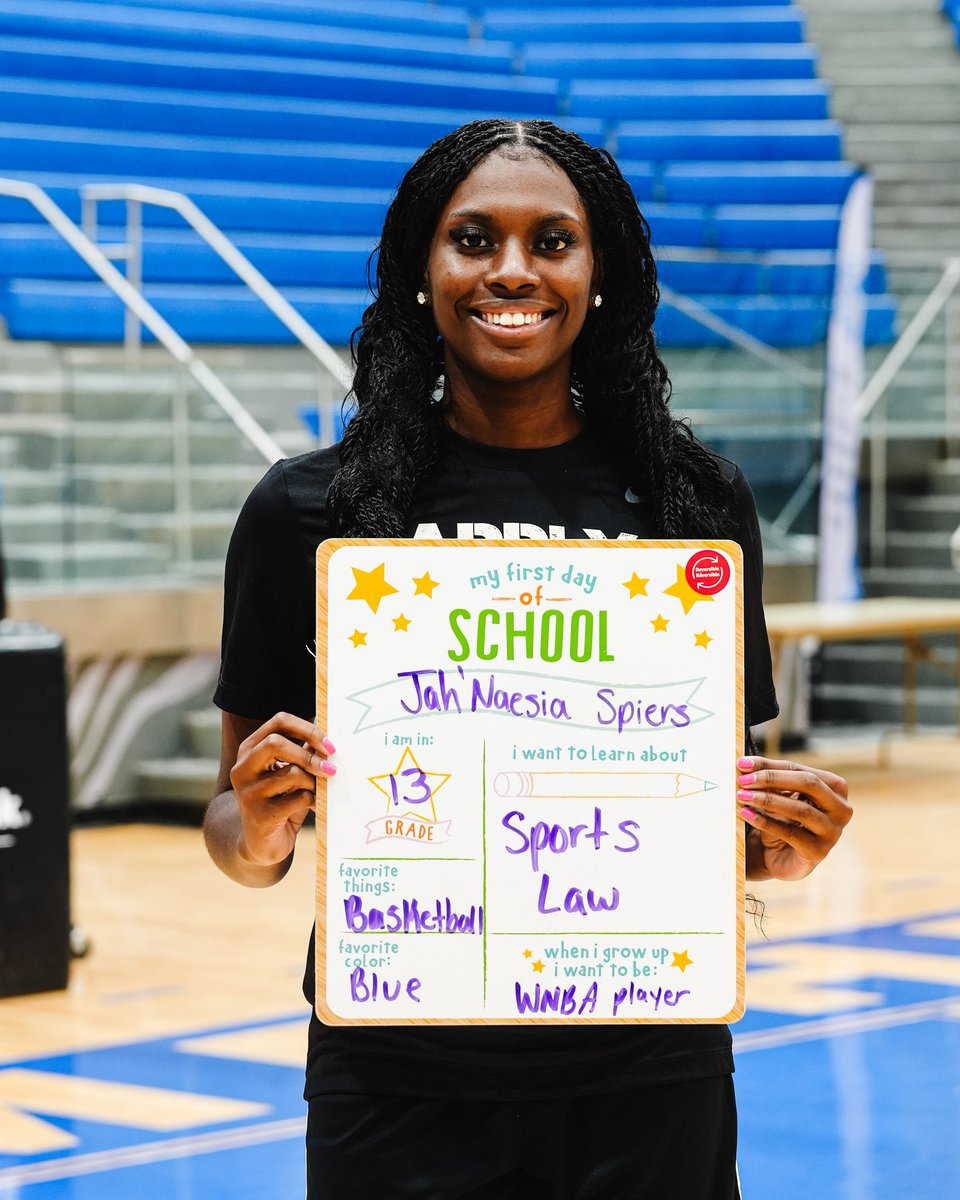 APPLY
my first day
of
SCHOOL
Reversible
Réversible
Jah'Naesia Spiers
i am in:
13
GRADE
i want to learn about
Sports
Law
favorite
things:
Basketball
favorite
color:
Blue
when i grow up
i want to be:
WNBA player